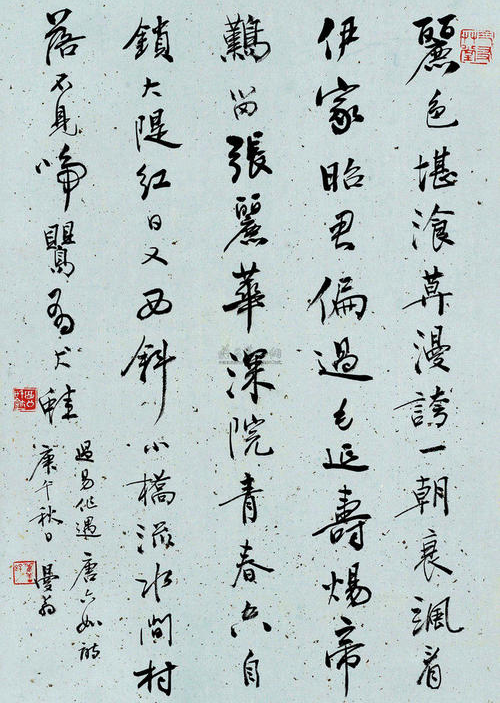 麗色堪湌莫漫誇一朝衰颯看
伊家昭君偏過毛延壽煬帝
難留張麗華深院青春空自
鎖大隄紅日又西斜小橋流水閒村
落不見啼鸎有吠蛙
過易作遇 唐六如詩
庚午秋日 曼翁